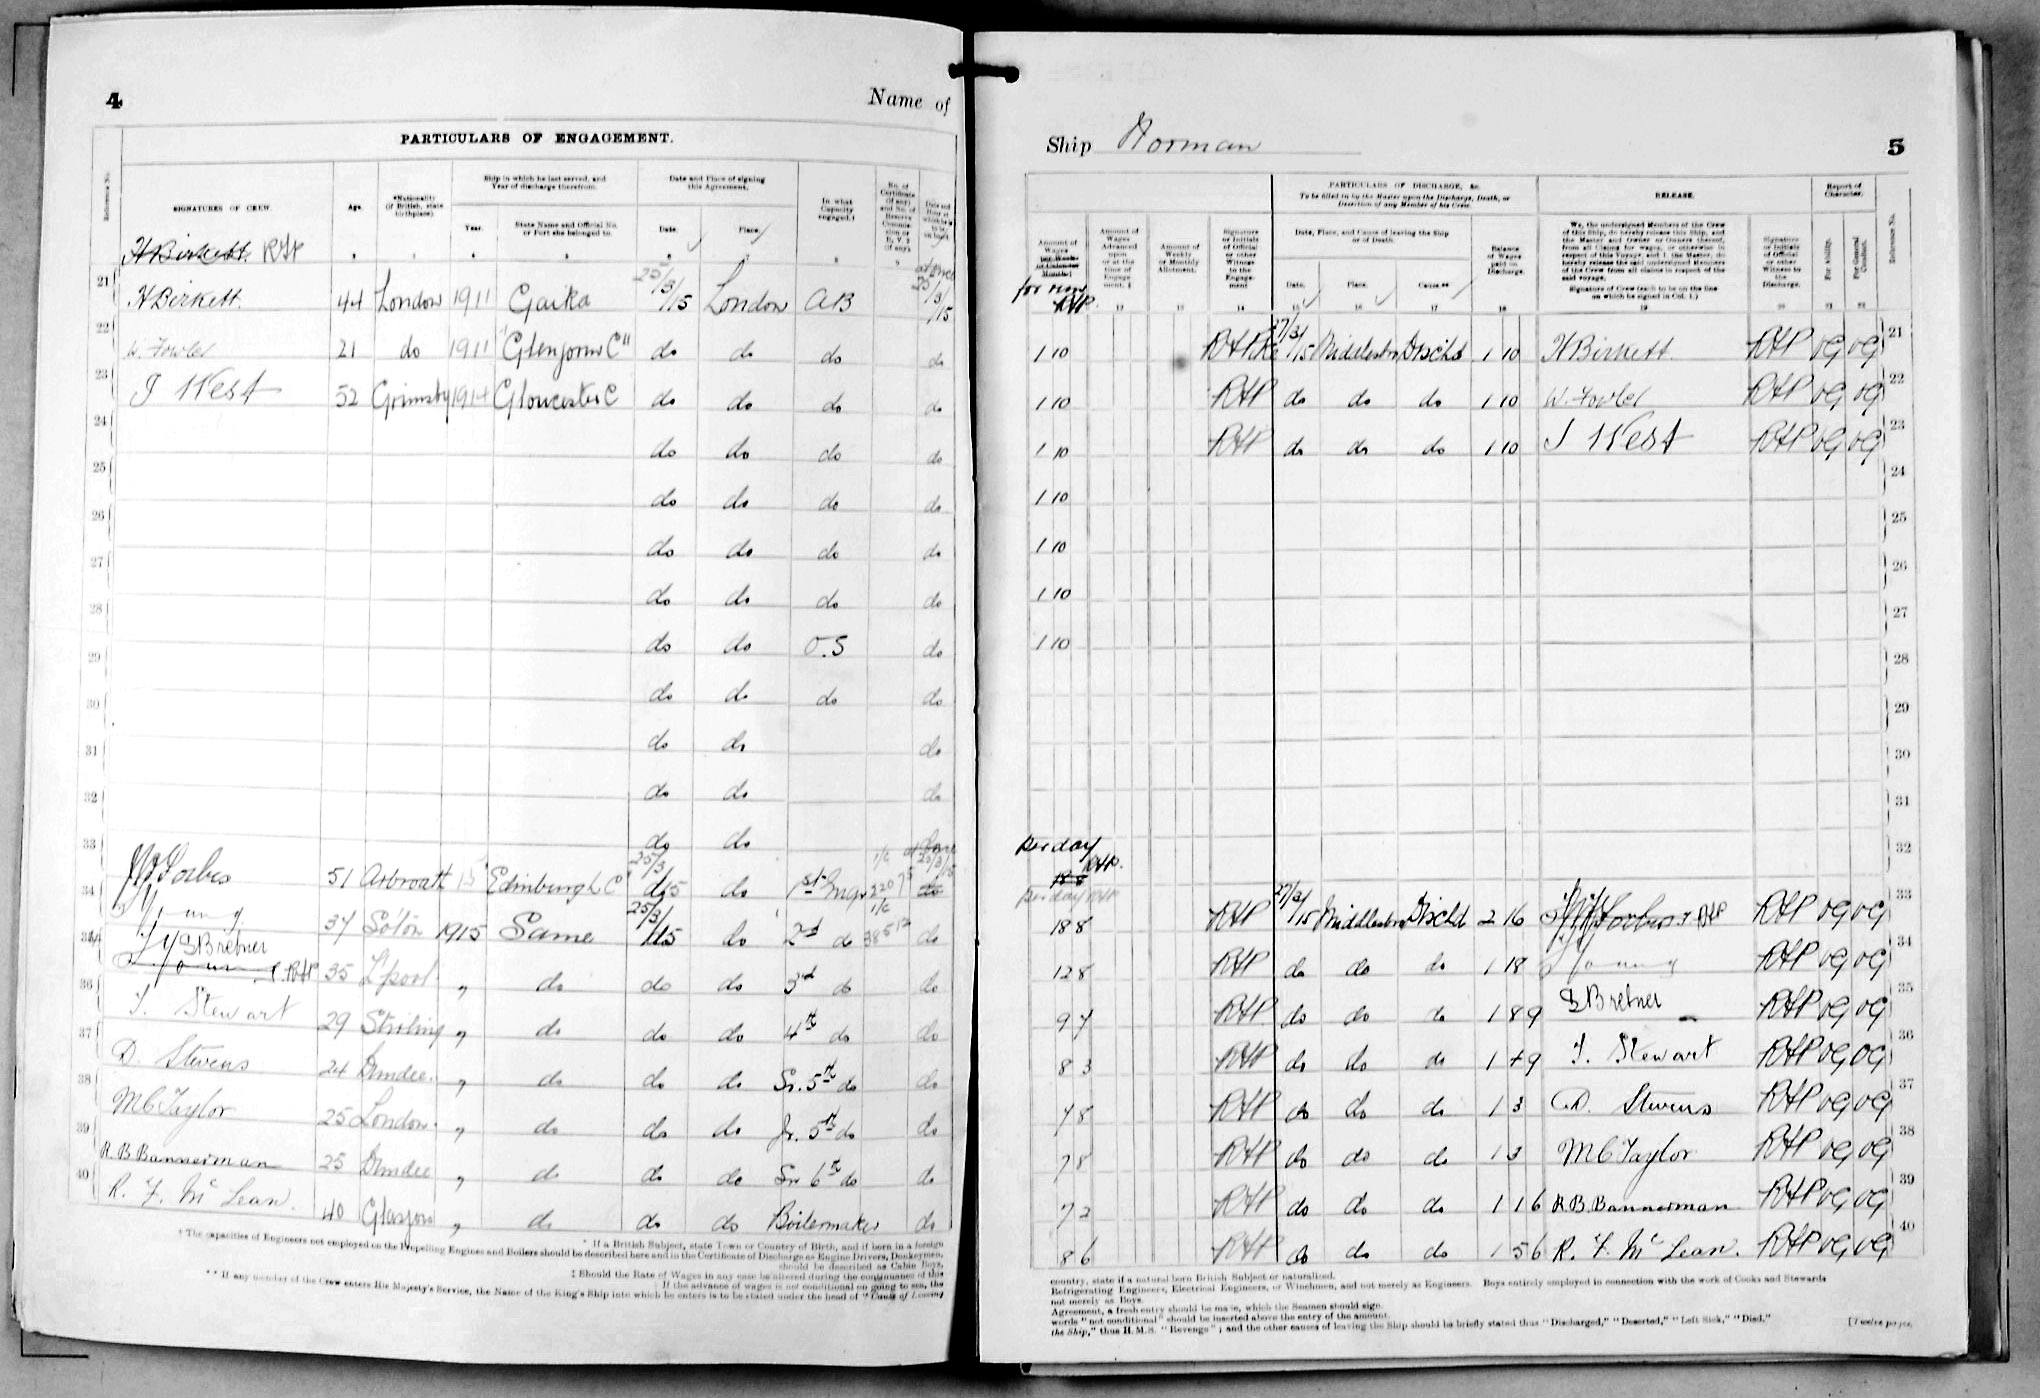 4
Name of
PARTICULARS OF ENGAGEMENT.
Reference No.
SIGNATURES OF CREW.
Age.
*Nationality (If British, state birthplace).
Ship in which he last served, and Year of discharge therefrom.
Year.
State Name and Official No. or Port she belonged to.
Date and Place of signing this Agreement.
Date.
Place.
In what Capacity engaged.†
H Birkett RHP
at once
21 H Birkett 44 London 1911 Gaika 25/3/15 London AB 25/3/15
22 W. Fowler 21 do 1911 do do do do
23 J West 52 Grimsby 1914 Gloucester C do do do do
24 do do do do
25 do do do do
26 do do do do
27 do do do do
28 do do O.S do
29 do do do do
30 do do do
31 do do do
32 do do
33 Forbes 51 Arbroath 15 Edinburgh C 25/3/15 do 1st Engr
34 Young 37 So'ton 1915 Same 25/3/15 do 2d do do
35 S Bretner 35 L'pool " do do do 3d do do
RHP
36 J. Stewart 29 Stirling " do do do 4th do do
37 D. Stevens 24 Dundee " do do do Sr. 5th do do
38 M C Taylor 25 London " do do do Jr. 5th do do
39 R. B. Bannerman 25 Dundee " do do do Sr 6th do do
40 R. F. McLean. 40 Glasgow " do do do Boilermaker do
* If a British Subject, state Town or Country of Birth, and if born in a foreign
† The capacities of Engineers not employed on the Propelling Engines and Boilers should be described here and in the Certificate of Discharge as Engine Drivers, Donkeymen,
should be described as Cabin Boys,
‡ Should the Rate of Wages in any case be altered during the continuance of this
If the advance of wages is not conditional on going to sea, the
** If any member of the Crew enters His Majesty's Service, the Name of the King's Ship into which he enters is to be stated under the head of "Cause of Leaving
Ship Norman
5
PARTICULARS OF DISCHARGE, &c.
To be filled in by the Master upon the Discharge, Death, or Desertion of any Member of his Crew.
RELEASE.
Report of Character.
Amount of Wages
Amount of Wages Advanced upon or at the time of Engagement.‡
Amount of Weekly or Monthly Allotment.
Signature or Initials of Official or other Witness to the Engagement
Date, Place, and Cause of leaving the Ship or of Death.
Date.
Place.
Cause.**
Balance of Wages paid on Discharge.
We, the undersigned Members of the Crew of this Ship, do hereby release this Ship, and the Master and Owner or Owners thereof, from all Claims for wages, or otherwise in respect of this Voyage; and I, the Master, do hereby release the said undersigned Members of the Crew from all claims in respect of the said voyage.
Signature of Crew (each to be on the line on which he signed in Col. 1.)
Signature or Initials of Official or other Witness to the Discharge.
For Ability.
For General Conduct.
Reference No.
for run
RHP.
1 10 RHP 27/3/15 Middlesbro Dischd 1 10 H Birkett RHP VG VG 21
1 10 RHP do do do 1 10 W. Fowler RHP VG VG 22
1 10 RHP do do do 1 10 J West RHP VG VG 23
1 10 24
1 10 25
1 10 26
1 10 27
28
29
30
31
32
Per day
RHP.
per day RHP
18 8 RHP 27/3/15 Middlesbro Dischd 2 16 Forbes RHP RHP VG VG 33
12 8 RHP do do do 1 18 Young RHP VG VG 34
9 7 RHP do do do 1 8 9 S Bretner RHP VG VG 35
8 3 RHP do do do J. Stewart RHP VG VG 36
7 8 RHP do do do 1 3 D. Stevens RHP VG VG 37
7 8 RHP do do do 1 3 M C Taylor RHP VG VG 38
7 2 RHP do do do 1 1 6 R.B. Bannerman RHP VG VG 39
8 6 RHP do do do 1 5 6 R. F. McLean. RHP VG VG 40
country, state if a natural born British Subject or naturalized.
Refrigerating Engineers, Electrical Engineers, or Winchmen, and not merely as Engineers. Boys entirely employed in connection with the work of Cooks and Stewards
not merely as Boys.
Agreement, a fresh entry should be made, which the Seamen should sign.
words "not conditional" should be inserted above the entry of the amount.
the Ship," thus H.M.S. "Revenge"; and the other causes of leaving the Ship should be briefly stated thus "Discharged," "Deserted," "Left Sick," "Died."
[Twelve pages.